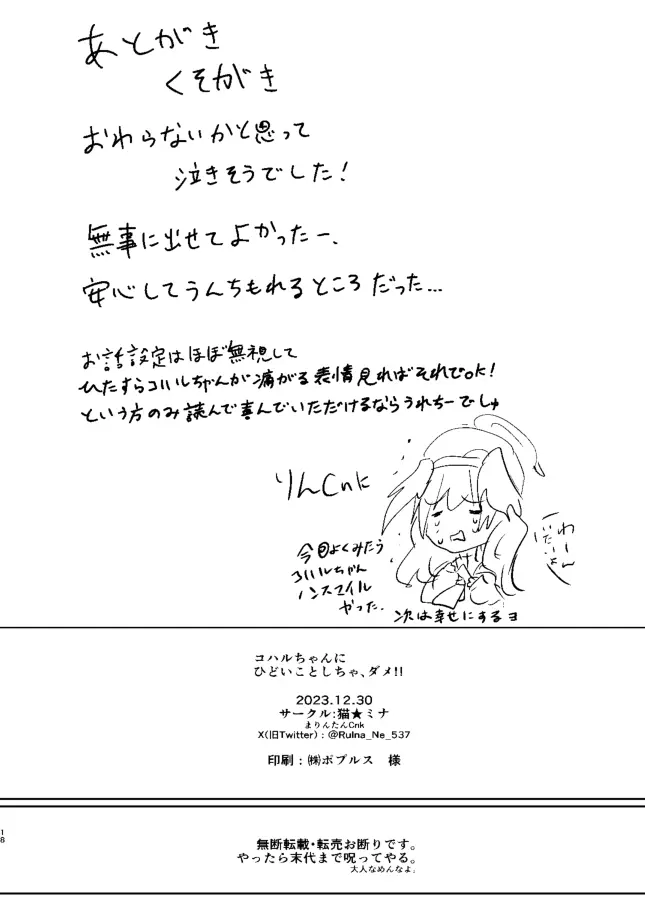 あとがき
くそがき
おわらないかと思って
泣きそうでした!
無事に出せてよかったー、
安心してうんちもれるところだった...
お話設定はほぼ無視して
ひたすらコハルちゃんが痛がる表情見ればそれでok!
という方のみ読んで喜んでいただけるならうれちーでしゅ
りんCnに
わーん
いたいよー
今回よくみたう
コハルちゃん
ノンスマイル
やった.
次は幸せにするヨ
コハルちゃんに
ひどいことしちゃ、ダメ!!
2023.12.30
サークル:猫★ミナ
まりんたんCnk
X(旧Twitter) : @RuIna_Ne_537
印刷 : ㈱ポプルス 様
18
無断転載・転売お断りです。
やったら末代まで呪ってやる。
大人なめんなよ。